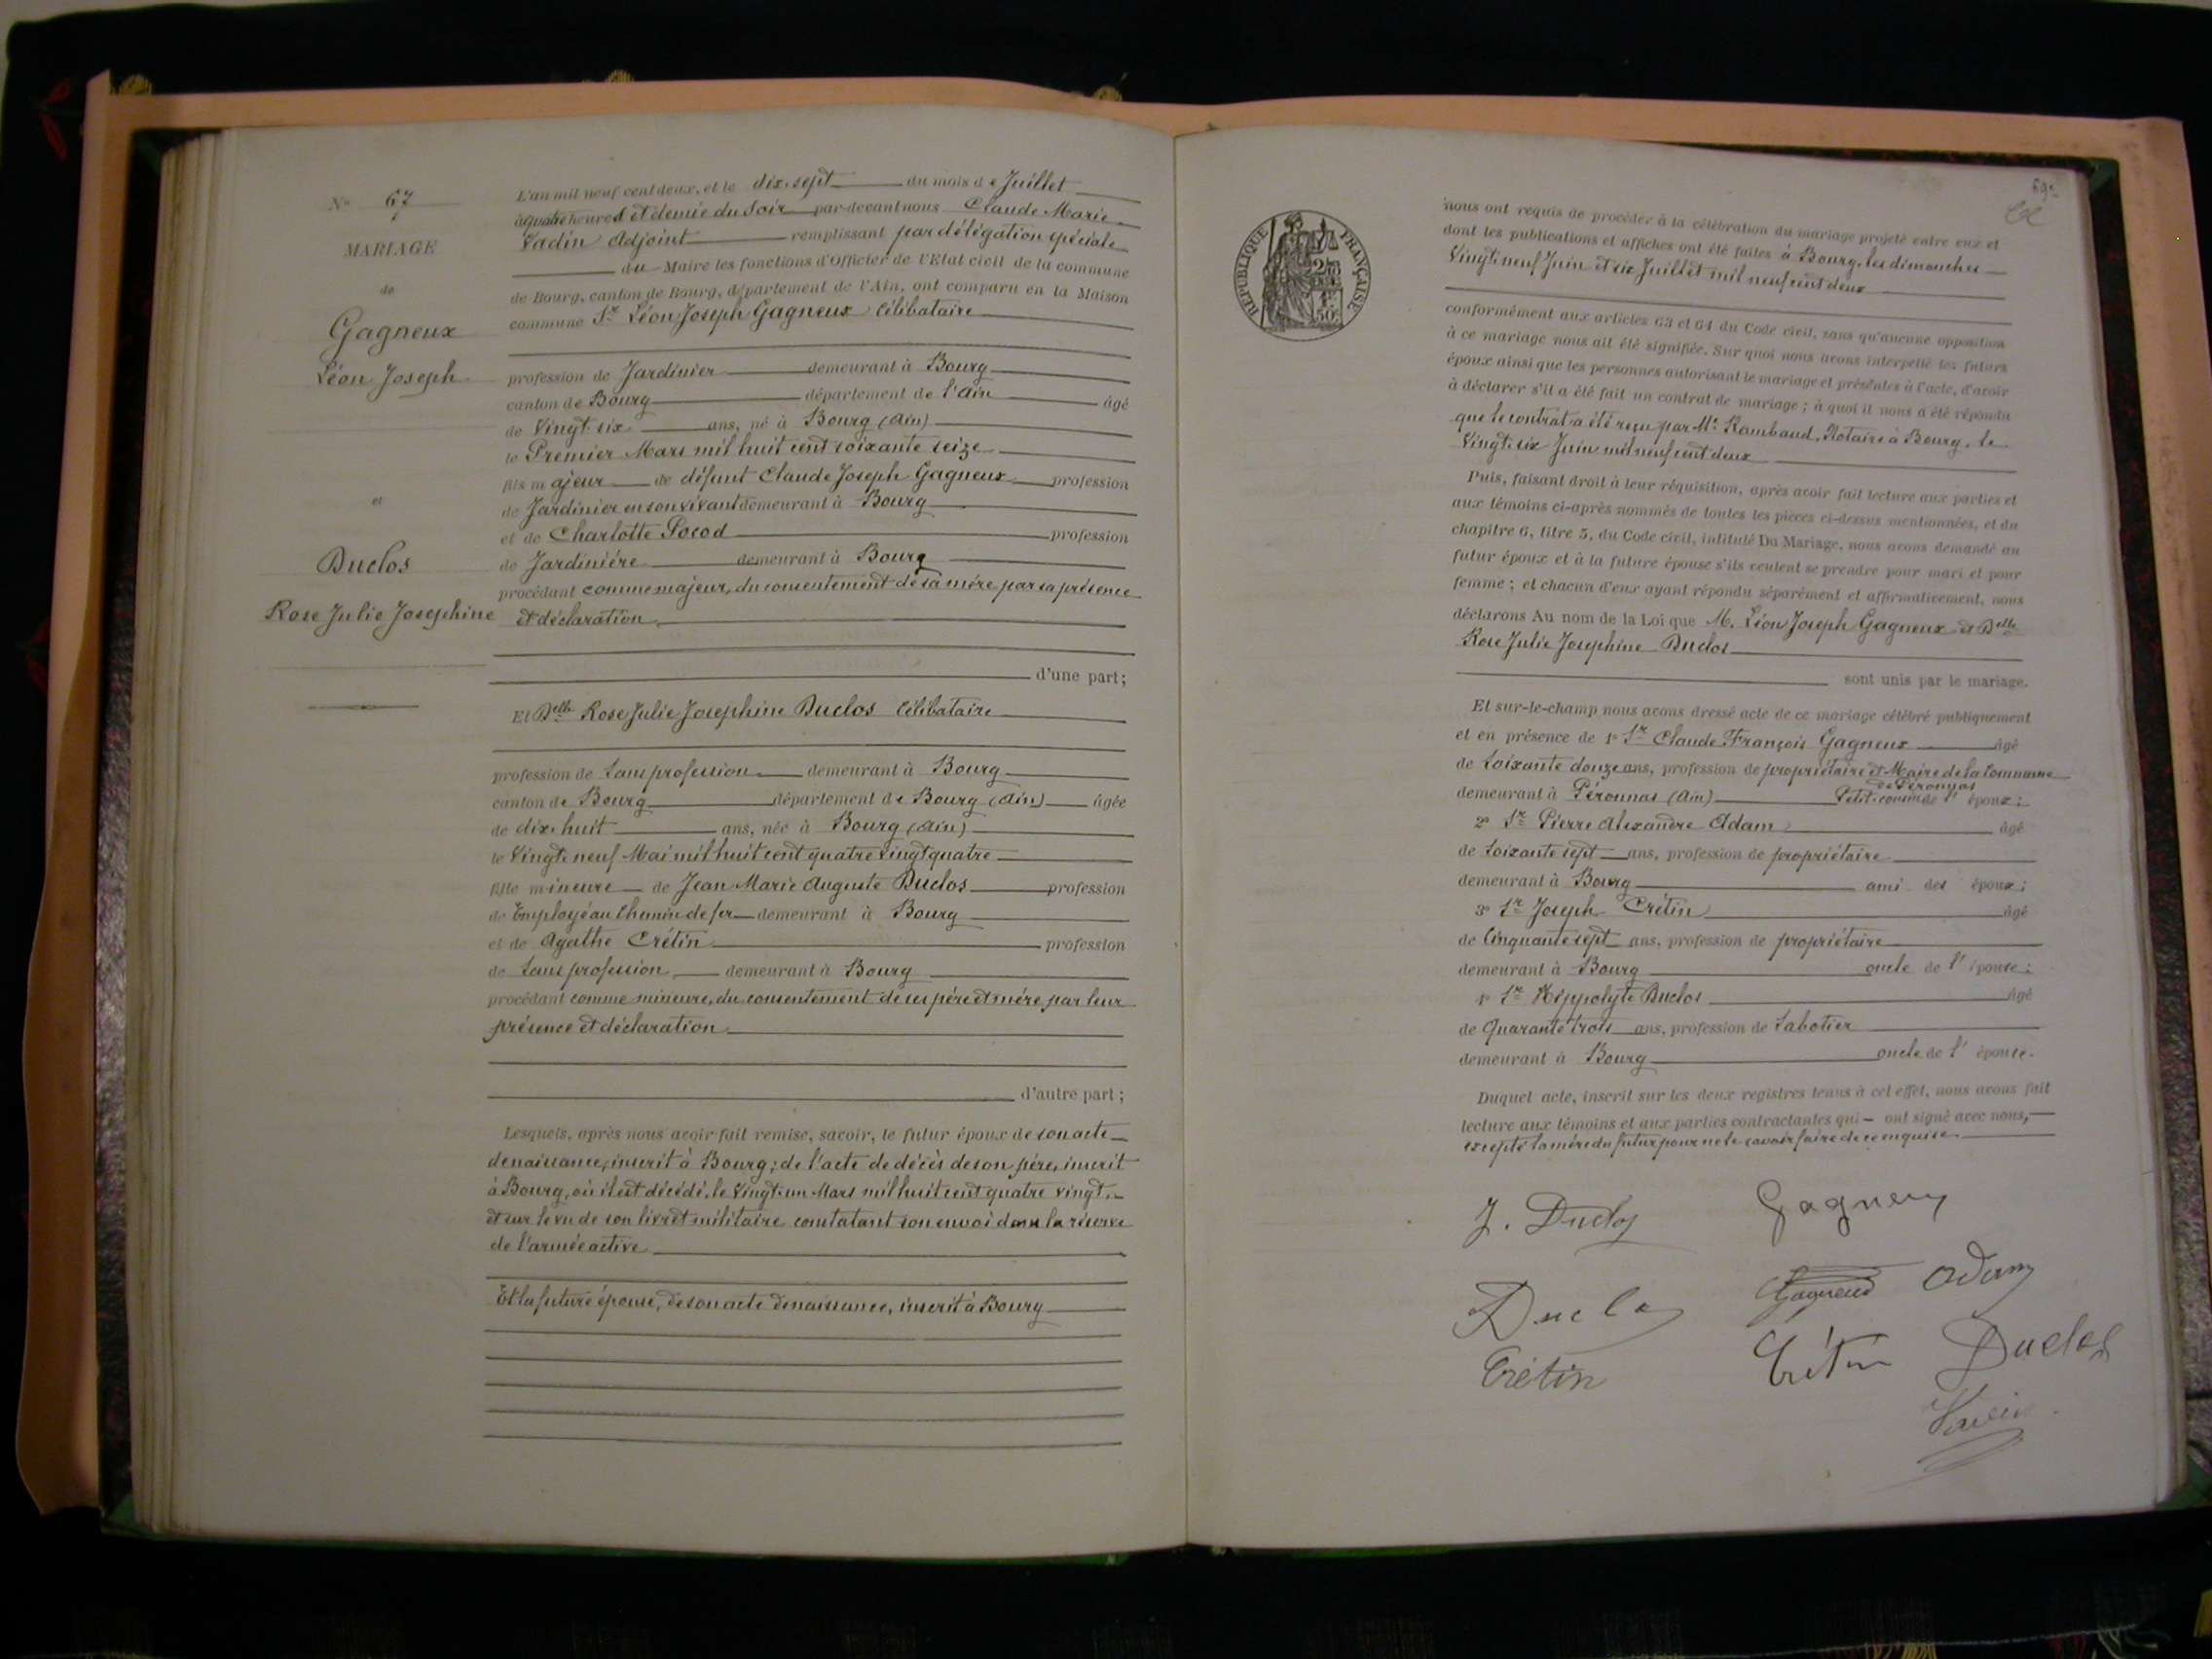 N° 67
MARIAGE
de
Gagneux
Léon Joseph
et
Duclos
Rose Julie Josephine
L'an mil neuf cent deux, et le dix-sept du mois de Juillet
à quatre heures et demie du Soir par-devant nous Claude Marie
Vadin Adjoint remplissant par délégation spéciale
du Maire les fonctions d'Officier de l'Etat civil de la commune
de Bourg, canton de Bourg, département de l'Ain, ont comparu en la Maison
commune Sr Léon Joseph Gagneux Célibataire
profession de Jardinier demeurant à Bourg
canton de Bourg département de l'Ain âgé
de Vingt-six ans, né à Bourg (Ain)
le Premier Mars mil huit cent soixante seize
fils majeur de défunt Claude Joseph Gagneux profession
de Jardinier en son vivant demeurant à Bourg
et de Charlotte Socod profession
de Jardinière demeurant à Bourg
procédant comme majeur, du consentement de sa mère par sa présence
et déclaration
d'une part;
Et Delle Rose Julie Josephine Duclos Célibataire
profession de Sans profession demeurant à Bourg
canton de Bourg département de Bourg (Ain) âgée
de dix-huit ans, née à Bourg (Ain)
le Vingt-neuf Mai mil huit cent quatre vingt quatre
fille mineure de Jean Marie Auguste Duclos profession
de Employé au Chemin de fer demeurant à Bourg
et de Agathe Crétin profession
de Sans profession demeurant à Bourg
procédant comme mineure, du consentement de ses père et mère par leur
présence et déclaration
d'autre part;
Lesquels, après nous avoir fait remise, savoir, le futur époux de son acte
de naissance, inscrit à Bourg; de l'acte de décès de son père, inscrit
à Bourg, où il est décédé, le Vingt-un Mars mil huit cent quatre vingt,
et sur le vu de son livret militaire constatant son envoi dans la réserve
de l'armée active
Et la future épouse, de son acte de naissance, inscrit à Bourg
69
REPUBLIQUE FRANÇAISE
nous ont requis de procéder à la célébration du mariage projeté entre eux et
dont les publications et affiches ont été faites à Bourg, les dimanches
Vingt-neuf Juin et six Juillet mil neuf cent deux
conformément aux articles 63 et 64 du Code civil, sans qu'aucune opposition
à ce mariage nous ait été signifiée. Sur quoi nous avons interpellé les futurs
époux ainsi que les personnes autorisant le mariage et présentes à l'acte, d'avoir
à déclarer s'il a été fait un contrat de mariage; à quoi il nous a été répondu
que le contrat a été reçu par Me Rambaud, Notaire à Bourg, le
Vingt-six Juin mil neuf cent deux
Puis, faisant droit à leur réquisition, après avoir fait lecture aux parties et
aux témoins ci-après nommés de toutes les pièces ci-dessus mentionnées, et du
chapitre 6, titre 5, du Code civil, intitulé Du Mariage, nous avons demandé au
futur époux et à la future épouse s'ils veulent se prendre pour mari et pour
femme; et chacun d'eux ayant répondu séparément et affirmativement, nous
déclarons Au nom de la Loi que M. Léon Joseph Gagneux et Delle
Rose Julie Josephine Duclos
sont unis par le mariage.
Et sur-le-champ nous avons dressé acte de ce mariage célébré publiquement
et en présence de 1° Sr Claude François Gagneux âgé
de Soixante douze ans, profession de propriétaire et Maire de la Commune
de Péronnas
demeurant à Péronnas (Ain) Petit-cousin de l'époux;
2° Sr Pierre Alexandre Adam âgé
de Soixante sept ans, profession de propriétaire
demeurant à Bourg ami des époux;
3° Sr Joseph Crétin âgé
de Cinquante sept ans, profession de propriétaire
demeurant à Bourg oncle de l'épouse;
4° Sr Hippolyte Duclos âgé
de Quarante trois ans, profession de Sabotier
demeurant à Bourg oncle de l'épouse.
Duquel acte, inscrit sur les deux registres tenus à cet effet, nous avons fait
lecture aux témoins et aux parties contractantes qui ont signé avec nous,
excepté la mère du futur pour ne le savoir faire de ce enquise
J. Duclos Gagneux
Duclos Gagneux Adam
Crétin Crétin Duclos
Vadin